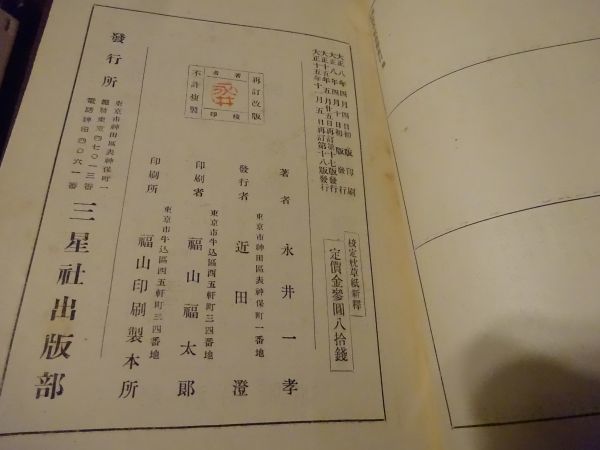 大正八年四月四日初版印刷
大正八年四月十日初版發行
大正十五年五月廿五日再訂第十七版發行
大正十五年十一月五日再訂第十八版發行
校定枕草紙新釋
定價金參圓八拾錢
再訂改版
著者
檢印
不許複製
永井
著者 永井一孝
東京市神田區表神保町一番地
發行者 近田澄
東京市牛込區西五軒町三四番地
印刷者 福山福太郎
東京市牛込區西五軒町三四番地
印刷所 福山印刷製本所
發行所
東京市神田區表神保町一
振替東京四七〇一三番
電話神田四〇六一番
三星社出版部